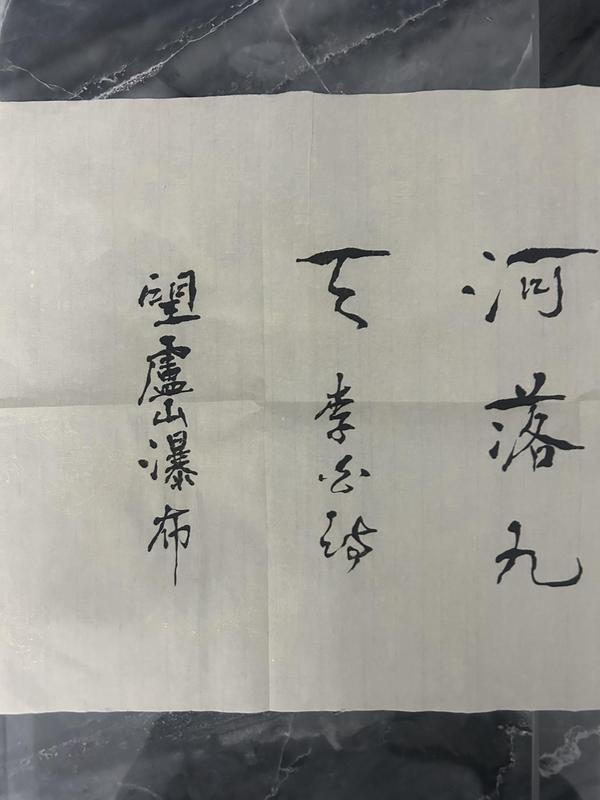 河落九
天 李白詩
望廬山瀑布